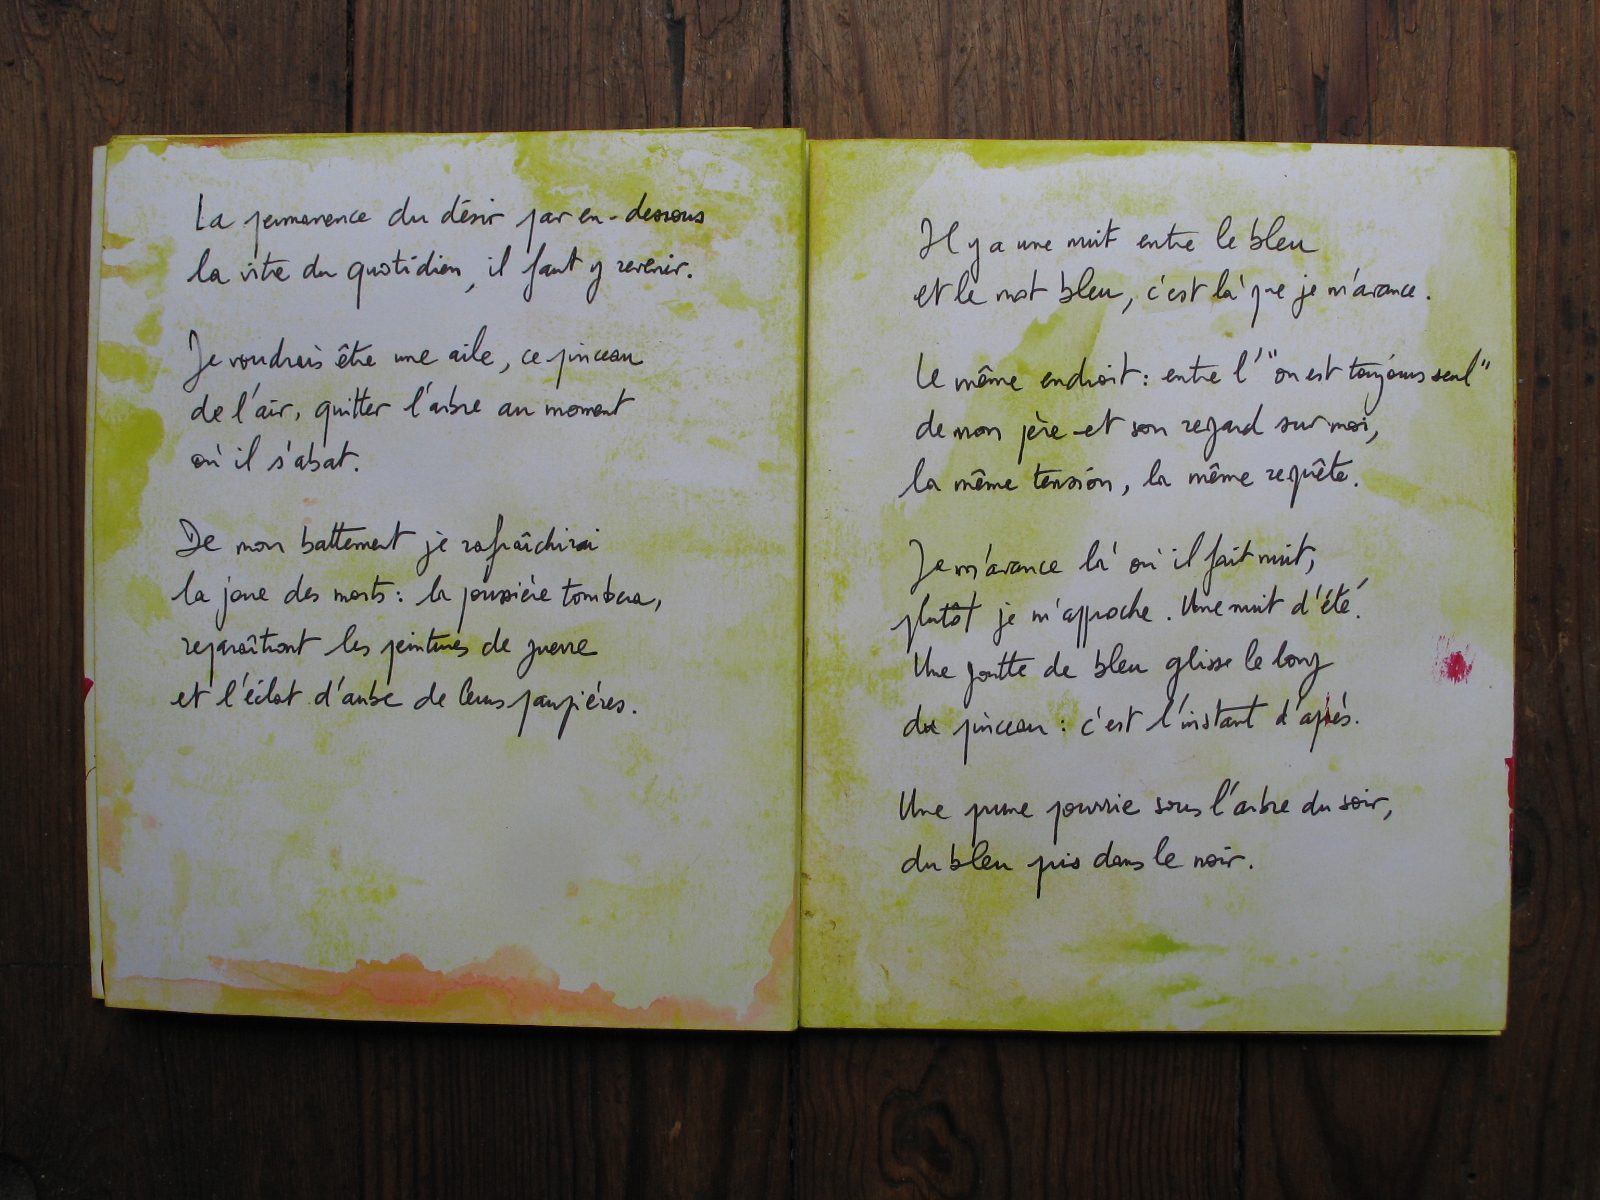 La permanence du désir par en-dessous
la vitre du quotidien, il faut y revenir.
Je voudrais être une aile, ce pinceau
de l'air, quitter l'arbre au moment
où il s'abat.
De mon battement je rafraîchirai
la joue des morts : la poussière tombera,
reparaîtront les peintures de guerre
et l'éclat d'aube de leurs paupières.
Il y a une nuit entre le bleu
et le mot bleu, c'est là que je m'avance.
Le même endroit : entre l'"on est toujours seul"
de mon père et son regard sur moi,
la même tension, la même requête.
Je m'avance là où il fait nuit,
plutôt je m'approche. Une nuit d'été.
Une goutte de bleu glisse le long
du pinceau : c'est l'instant d'après.
Une prune pourrie sous l'arbre du soir,
du bleu pris dans le noir.